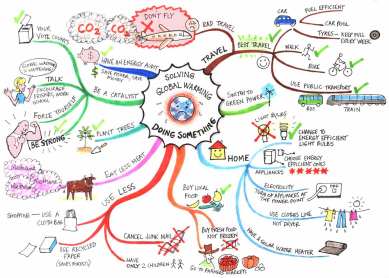 SOLVING
GLOBAL WARMING
DOING SOMETHING
TRAVEL
BAD TRAVEL
DON'T FLY
CO2
CO2
BEST TRAVEL
CAR
FUEL EFFICIENT
CAR POOL
TYRES - KEEP FULL
EVERY WEEK
WALK
BIKE
USE PUBLIC TRANSPORT
BUS
TRAIN
SWITCH TO
GREEN POWER
HOME
LIGHT BULBS
CHANGE TO
ENERGY EFFICIENT
LIGHT BULBS
APPLIANCES
CHOOSE
ENERGY
EFFICIENT ONES
ELECTRICITY
TURN OFF APPLIANCES AT
THE POWER POINT
USE CLOTHES LINE
NOT DRYER
HAVE A SOLAR WATER HEATER
BUY LOCAL
FOOD
BUY FRESH FOOD
NOT FROZEN
GO TO FARMERS MARKETS
USE LESS
CANCEL JUNK MAIL
HAVE
ONLY 2 CHILDREN
SHOPPING - USE A
CLOTH BAG
USE RECYCLED
PAPER
EAT LESS MEAT
Methane
PLANT TREES
BE A CATALYST
HAVE AN ENERGY AUDIT
SAVE POWER, SAVE
MONEY
YOUR
VOTE COUNTS
TALK
ENCOURAGE
FRIENDS, WORK
SCHOOL
FORCE YOURSELF
BE STRONG